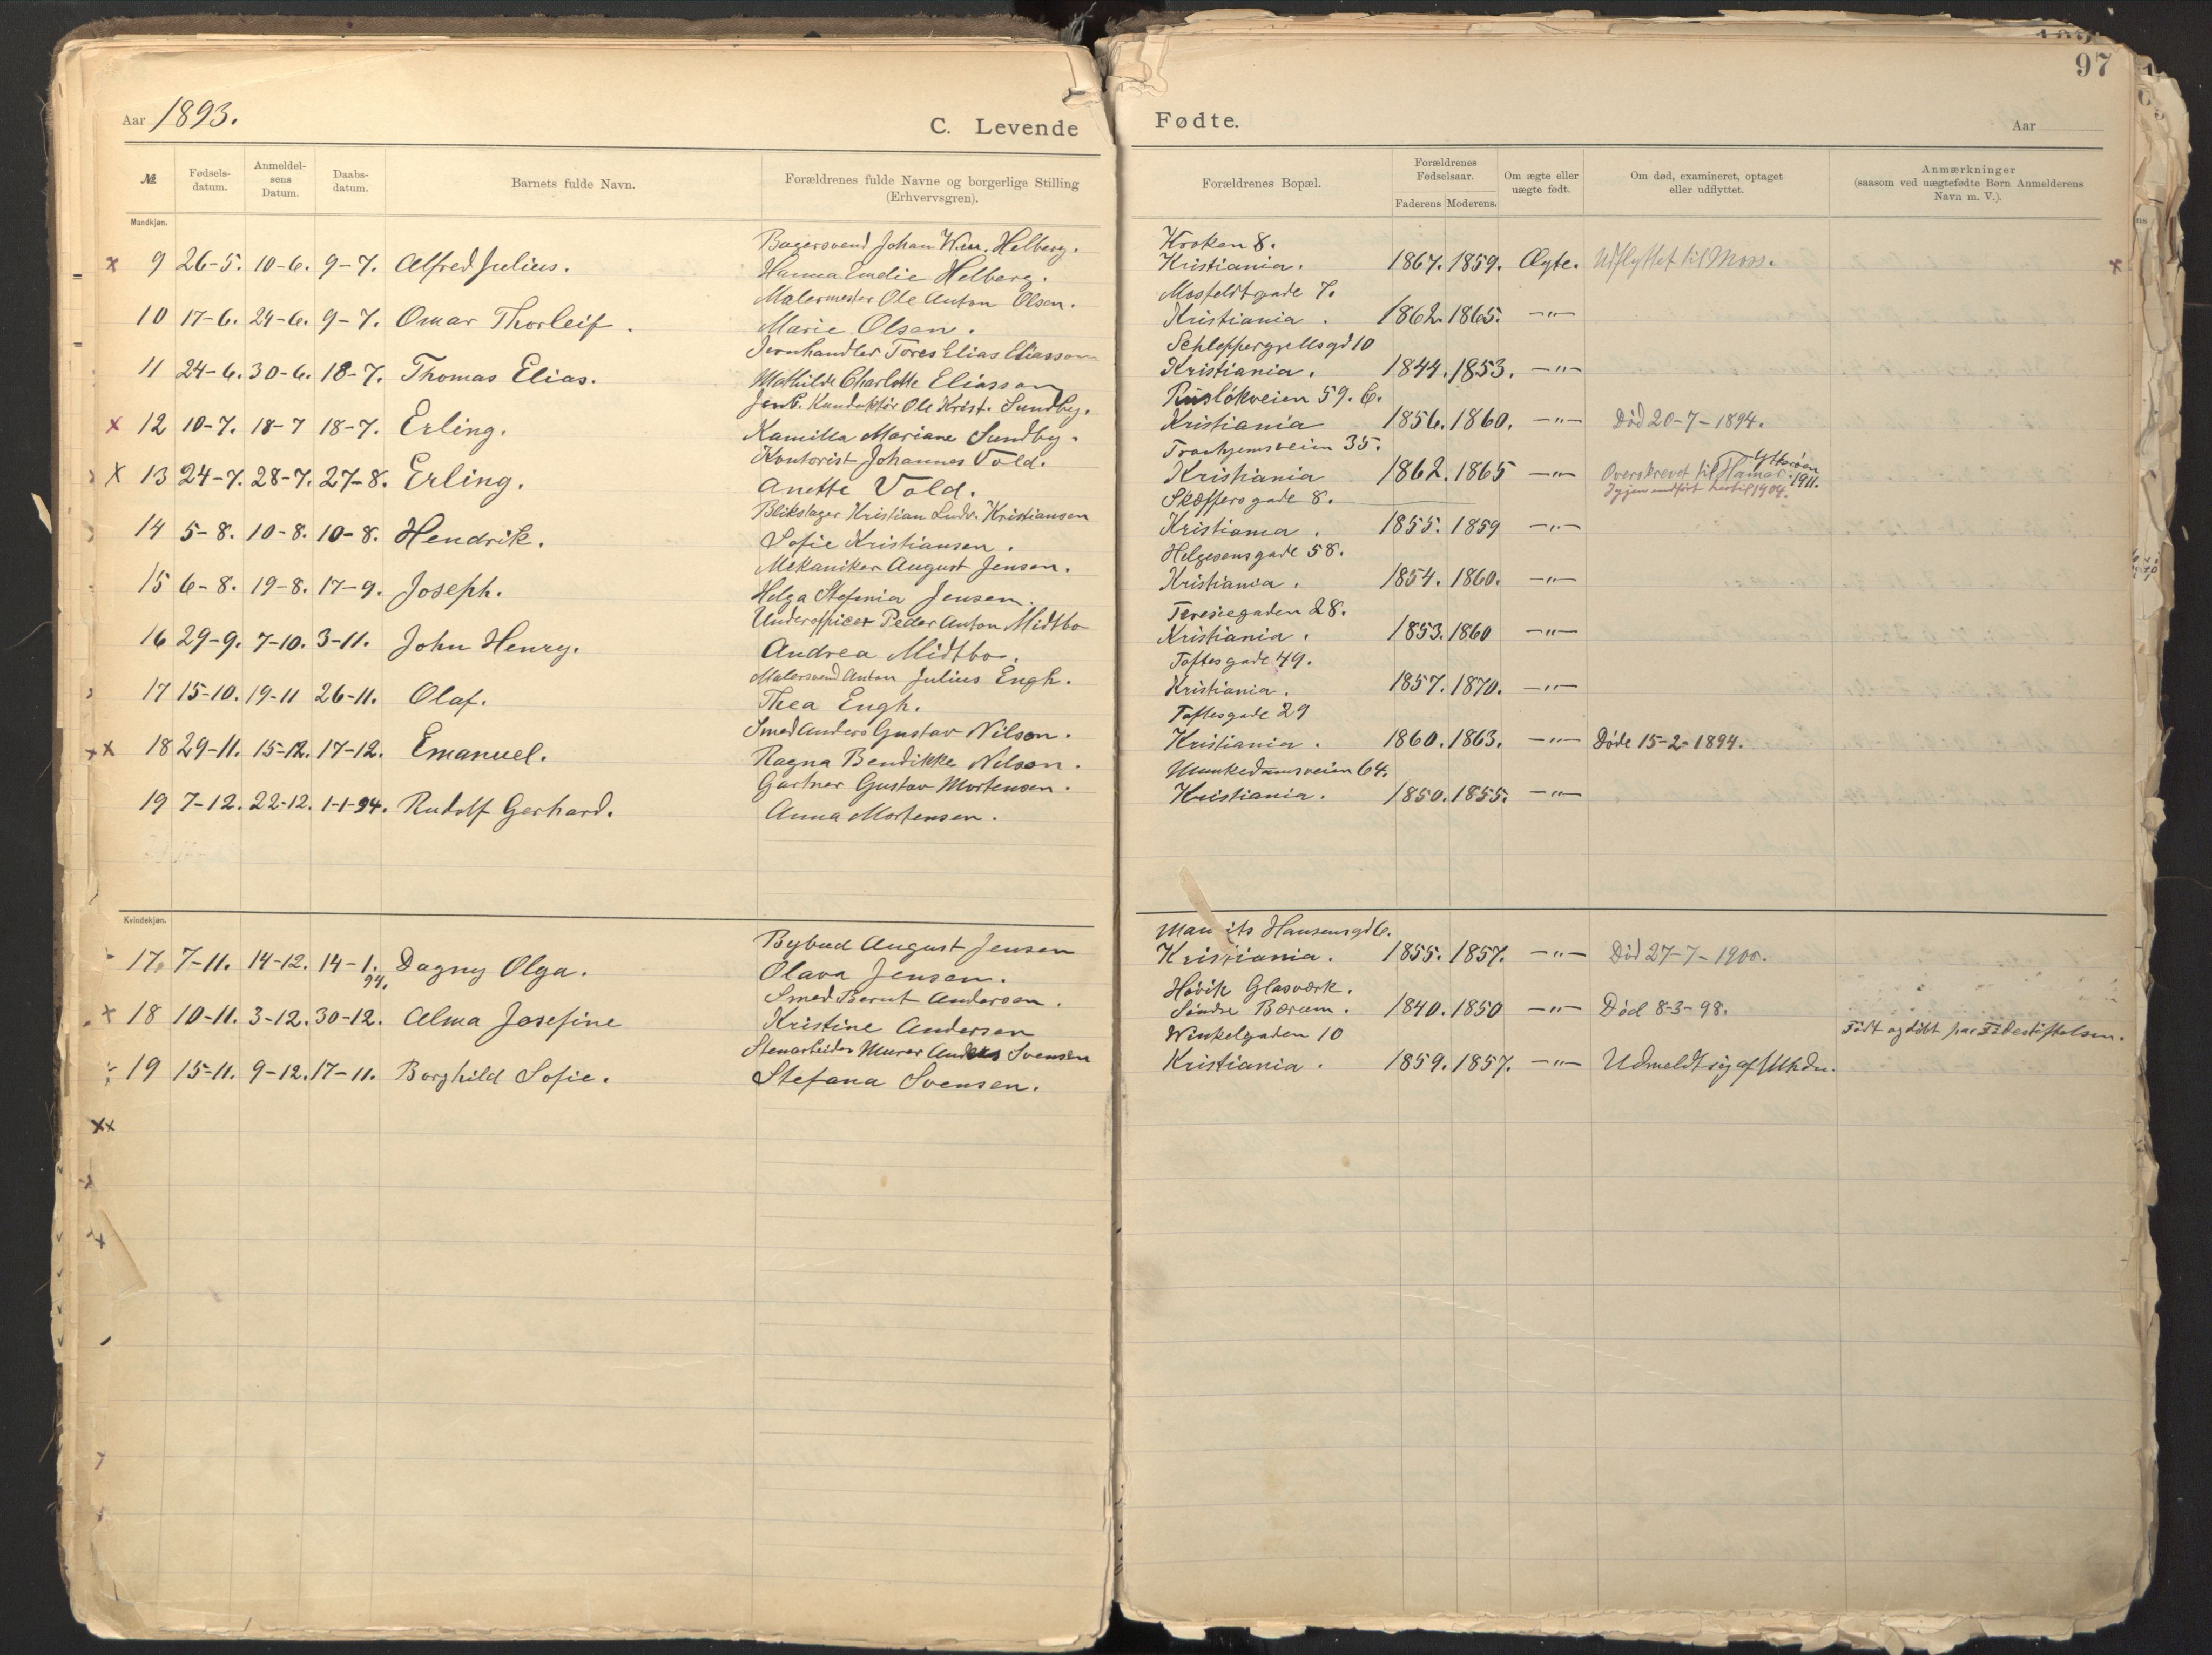 97
Aar 1893.
C. Levende Fødte.
Aar
№
Fødsels-
datum.
Anmeldel-
sens
Datum.
Daabs-
datum.
Barnets fulde Navn.
Forældrenes fulde Navne og borgerlige Stilling
(Erhvervsgren).
Forældrenes Bopæl.
Forældrenes
Fødselsaar.
Faderens Moderens.
Om ægte eller
uægte født.
Om død, examineret, optaget
eller udflyttet.
Anmærkninger
(saasom ved uægtefødte Børn Anmelderens
Navn m. V.).
Mandkjøn.
Bagersvend Johan Wm. Helberg. Kroken 8.
x 9 26-5. 10-6. 9-7. Alfred Julius. Hanna Emelie Helberg. Kristiania. 1867. 1859. Ægte. Udflyttet til Moss. x
Malermester Ole Anton Olsen. Mosfeldtgade 7.
10 17-6. 24-6. 9-7. Omar Thorleif. Marie Olsen. Kristiania. 1862. 1865. -"-
Jernhandler Tores Elias Eliasson Schleppergrellsgd 10
11 24-6. 30-6. 18-7. Thomas Elias. Mathilde Charlotte Eliasson Kristiania. 1844. 1853. -"-
Jernb. Konduktör Ole Krist. Sundby. Ruslökveien 59. 6.
x 12 10-7. 18-7 18-7. Erling. Kamilla Mariane Sundby. Kristiania 1856. 1860. -"- Död 20-7-1894.
Kontorist Johannes Vold. Tronhjemsveien 35.
x 13 24-7. 28-7. 27-8. Erling. Anette Vold. Kristiania 1862. 1865 -"- Overskrevet til Hamar Ytterøen 1911.
Igjen indført hertil 1904.
Blikslager Kristian Ludv. Kristiansen Skøffersgade 8.
14 5-8. 10-8. 10-8. Hendrik. Sofie Kristiansen. Kristiania. 1855. 1859 -"-
Mekaniker August Jensen. Helgesensgade 58.
15 6-8. 19-8. 17-9. Joseph. Helga Stefania Jensen. Kristiania. 1854. 1860. -"-
Underofficer Peder Anton Midtbo Teresiegaden 28.
16 29-9. 7-10. 3-11. John Henry. Andrea Midtbo. Kristiania. 1853. 1860 -"-
Malersvend Anton Julius Engh. Toftesgade 49.
17 15-10. 19-11 26-11. Olaf. Thea Engh. Kristiania. 1857. 1870. -"-
Smed Anders Gustav Nilson. Toftesgade 29
xx 18 29-11. 15-12. 17-12. Emanuel. Ragna Bendikke Nilson. Kristiania. 1860. 1863. -"- Døde 15-2-1894.
Gartner Gustav Mortensen. Munkedamsveien 64.
19 7-12. 22-12. 1-1-94. Rudolf Gerhard. Anna Mortensen. Kristiania. 1850. 1855. -"-
Kvindekjøn.
Bybud August Jensen Hansensgd 6.
17. 7-11. 14-12. 14-1. 94. Dagny Olga. Olava Jensen. Kristiania. 1855. 1857. -"- Död 27-7-1900.
Smed Bernt Andersen. Hövik Glasværk.
x 18 10-11. 3-12. 30-12. Alma Josefine Kristine Andersen Söndre Bærum. 1840. 1850 -"- Död 8-3-98.
Stenarbeider Murer Anders Svensen Winkelgaden 10 Födt og döbt paa Födestiftelsen.
19 15-11. 9-12. 17-11. Borghild Sofie. Stefana Svensen. Kristiania. 1859. 1857. -"- Udmeldt sig af Mhdn.
xx